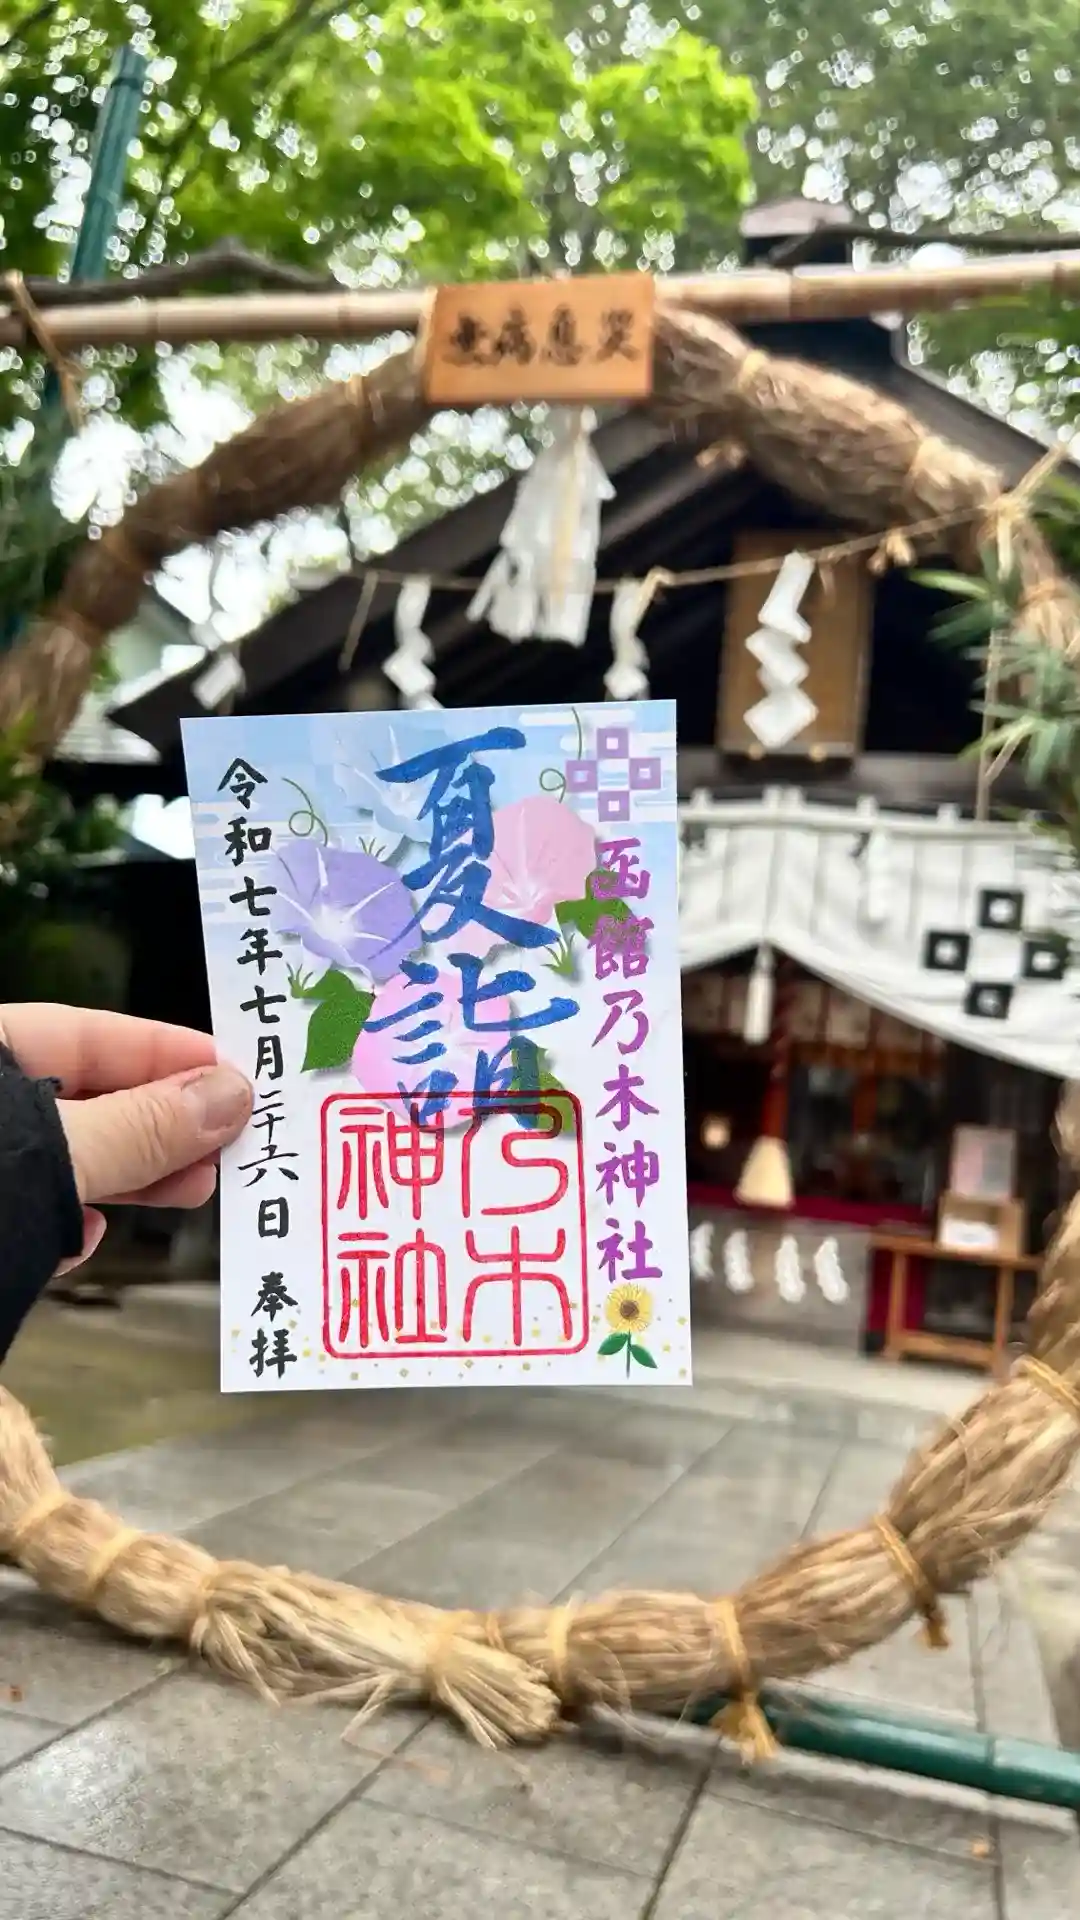 無病息災
函館乃木神社
夏詣
乃木
神社
令和七年七月二十六日 奉拝